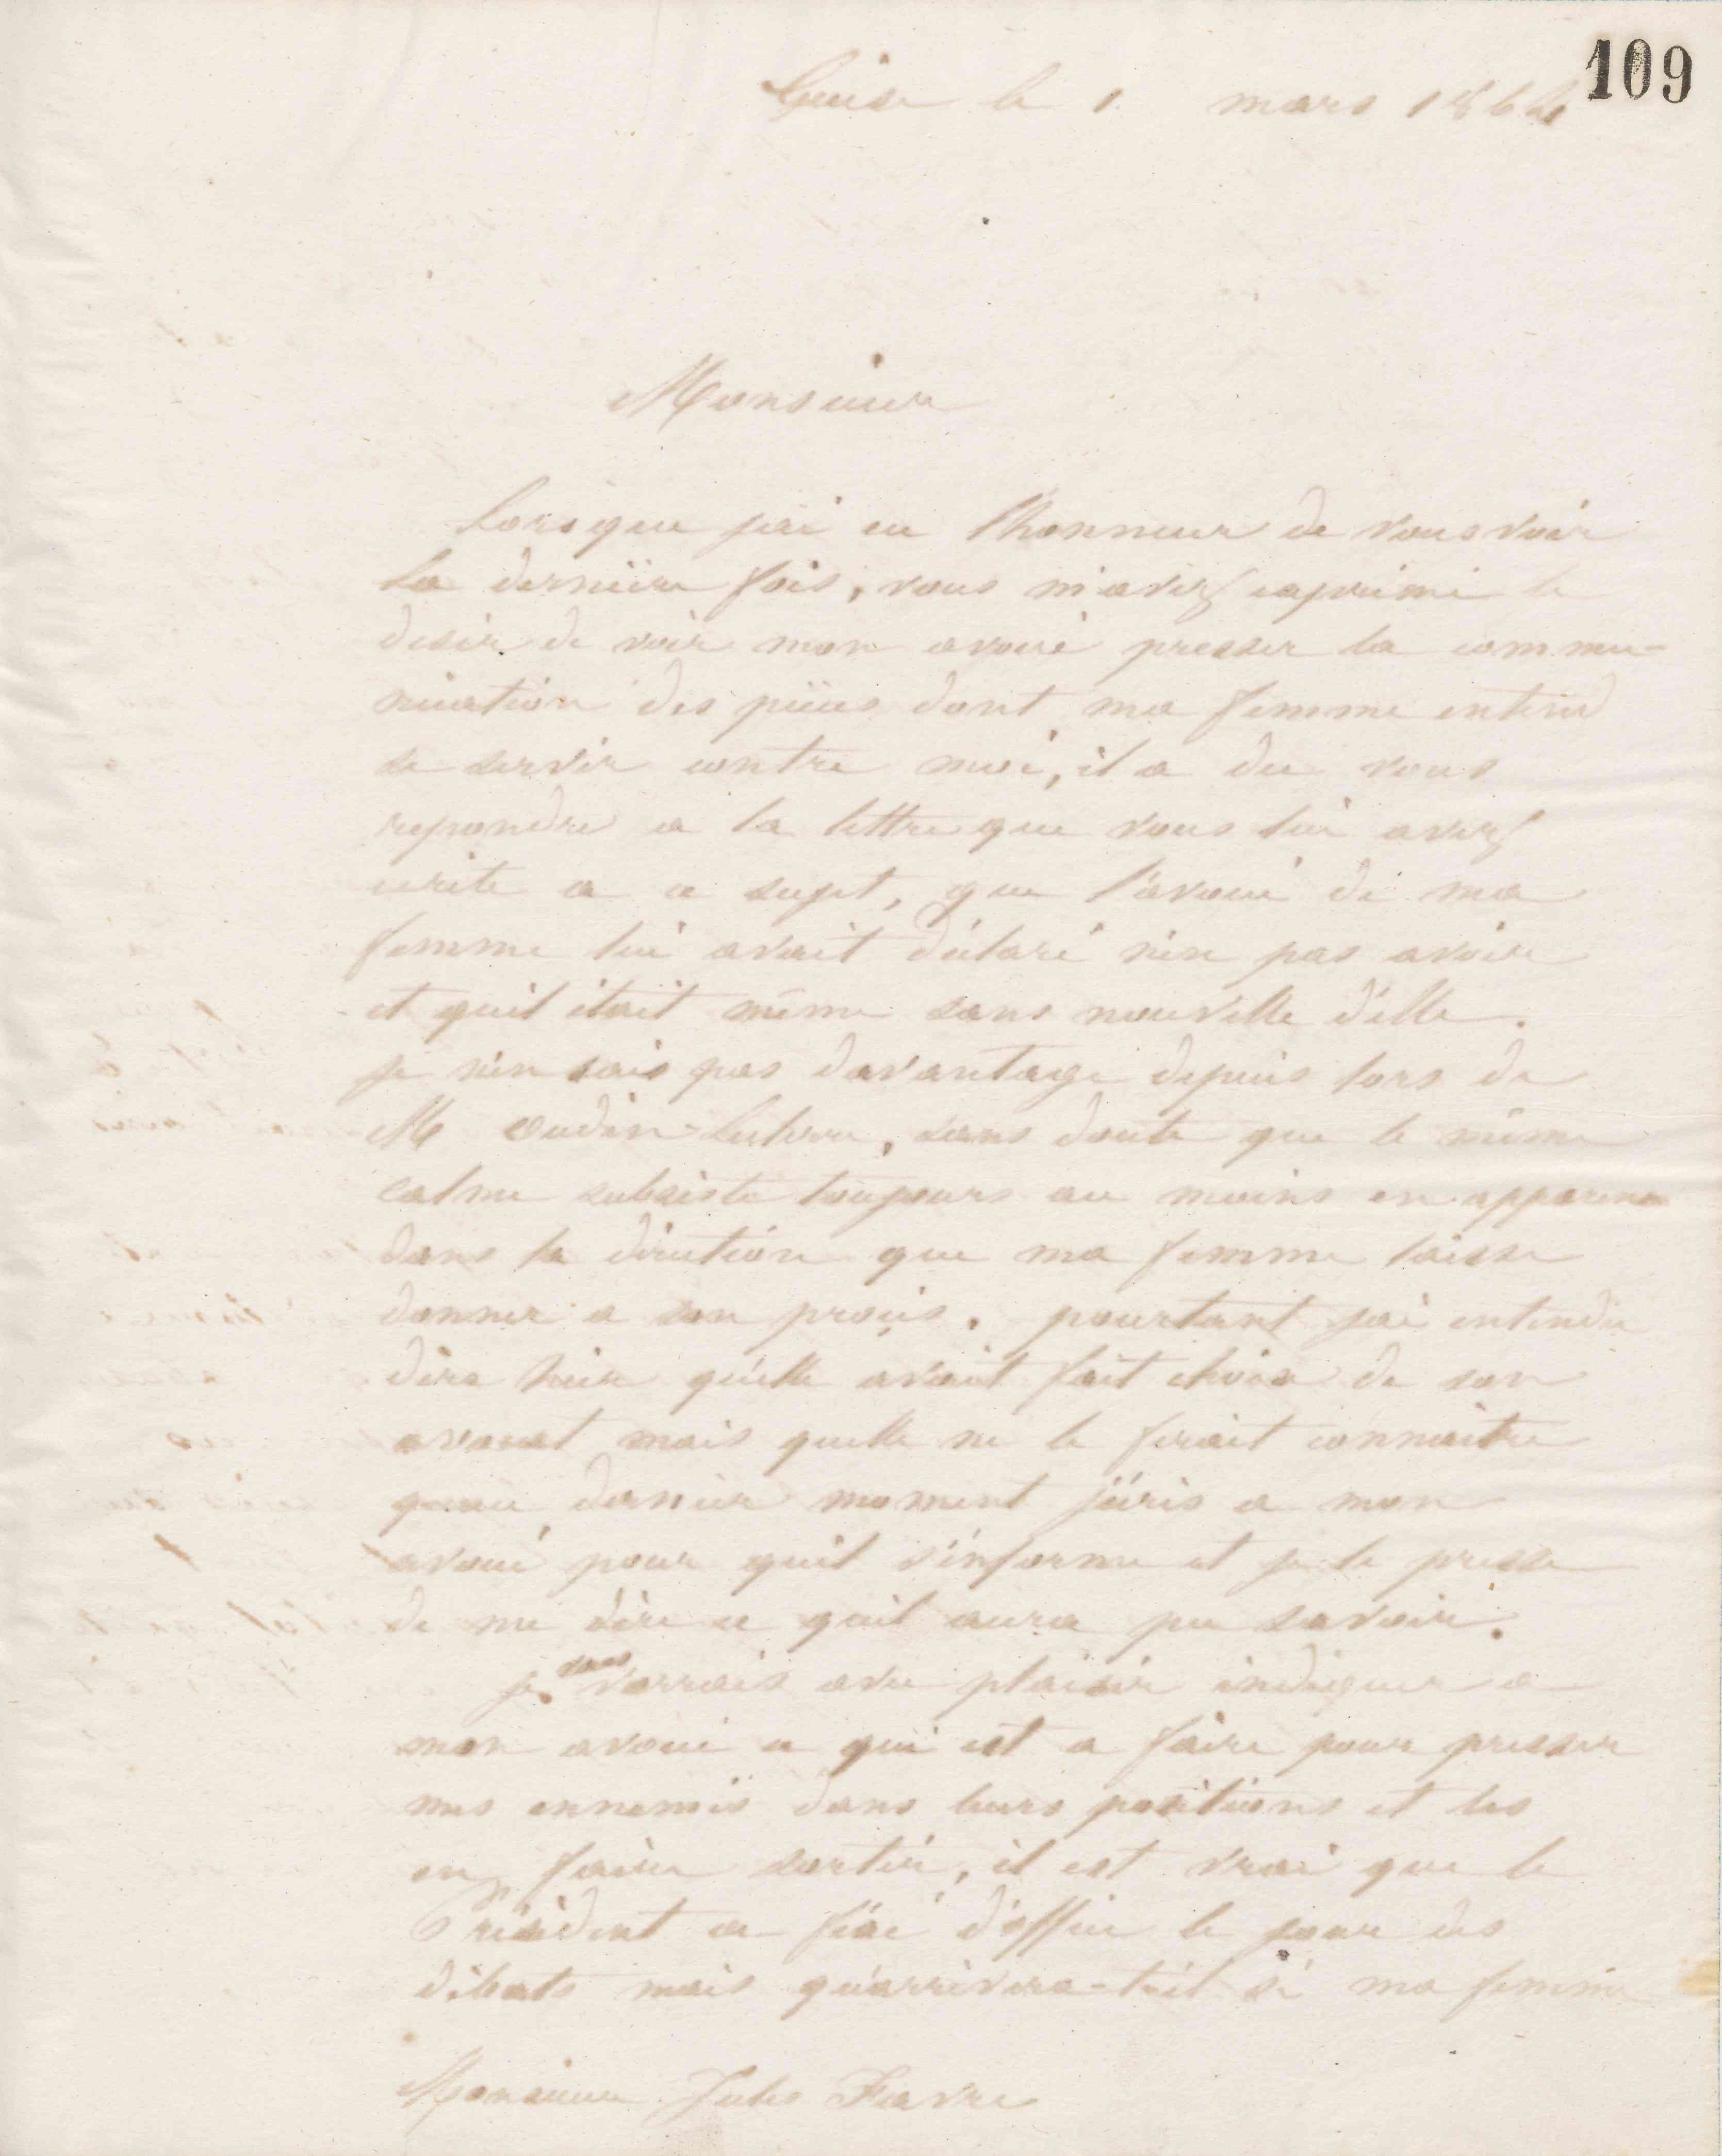 109
Guise le 1 mars 1864
Monsieur
Lorsque jai eu l'honneur de vous voir
la dernière fois, vous m'avez exprimé le
desir de voir mon avoué presser la commu-
nication des pièces dont ma femme entend
se servir contre moi, il a du vous
repondre a la lettre que vous lui avez
ecrite a ce sujet, que l'avoué de ma
femme lui avait déclaré n'en pas avoir
et quil était même sans nouvelle d'elle.
je n'en sais pas davantage depuis lors de
M Oudin-Leclere, sans doute que le même
calme subsiste toujours au moins en apparence
dans la direction que ma femme laisse
donner a son procès. pourtant jai entendu
dire hier qu'elle avait fait choix de son
avocat mais quelle ne le ferait connaitre
quau dernier moment j'écris a mon
avoué pour quil s'informe et je le presse
de me dire ce quil aura pu savoir.
je vous verrais avec plaisir indiquer a
mon avoué ce qui est a faire pour presser
mes ennemis dans leurs positions et les
en faire sortir, il est vrai que le
Président a fixé d'office le jour des
débats mais qu'arrivera-t-il si ma femme
Monsieur Jules Favre